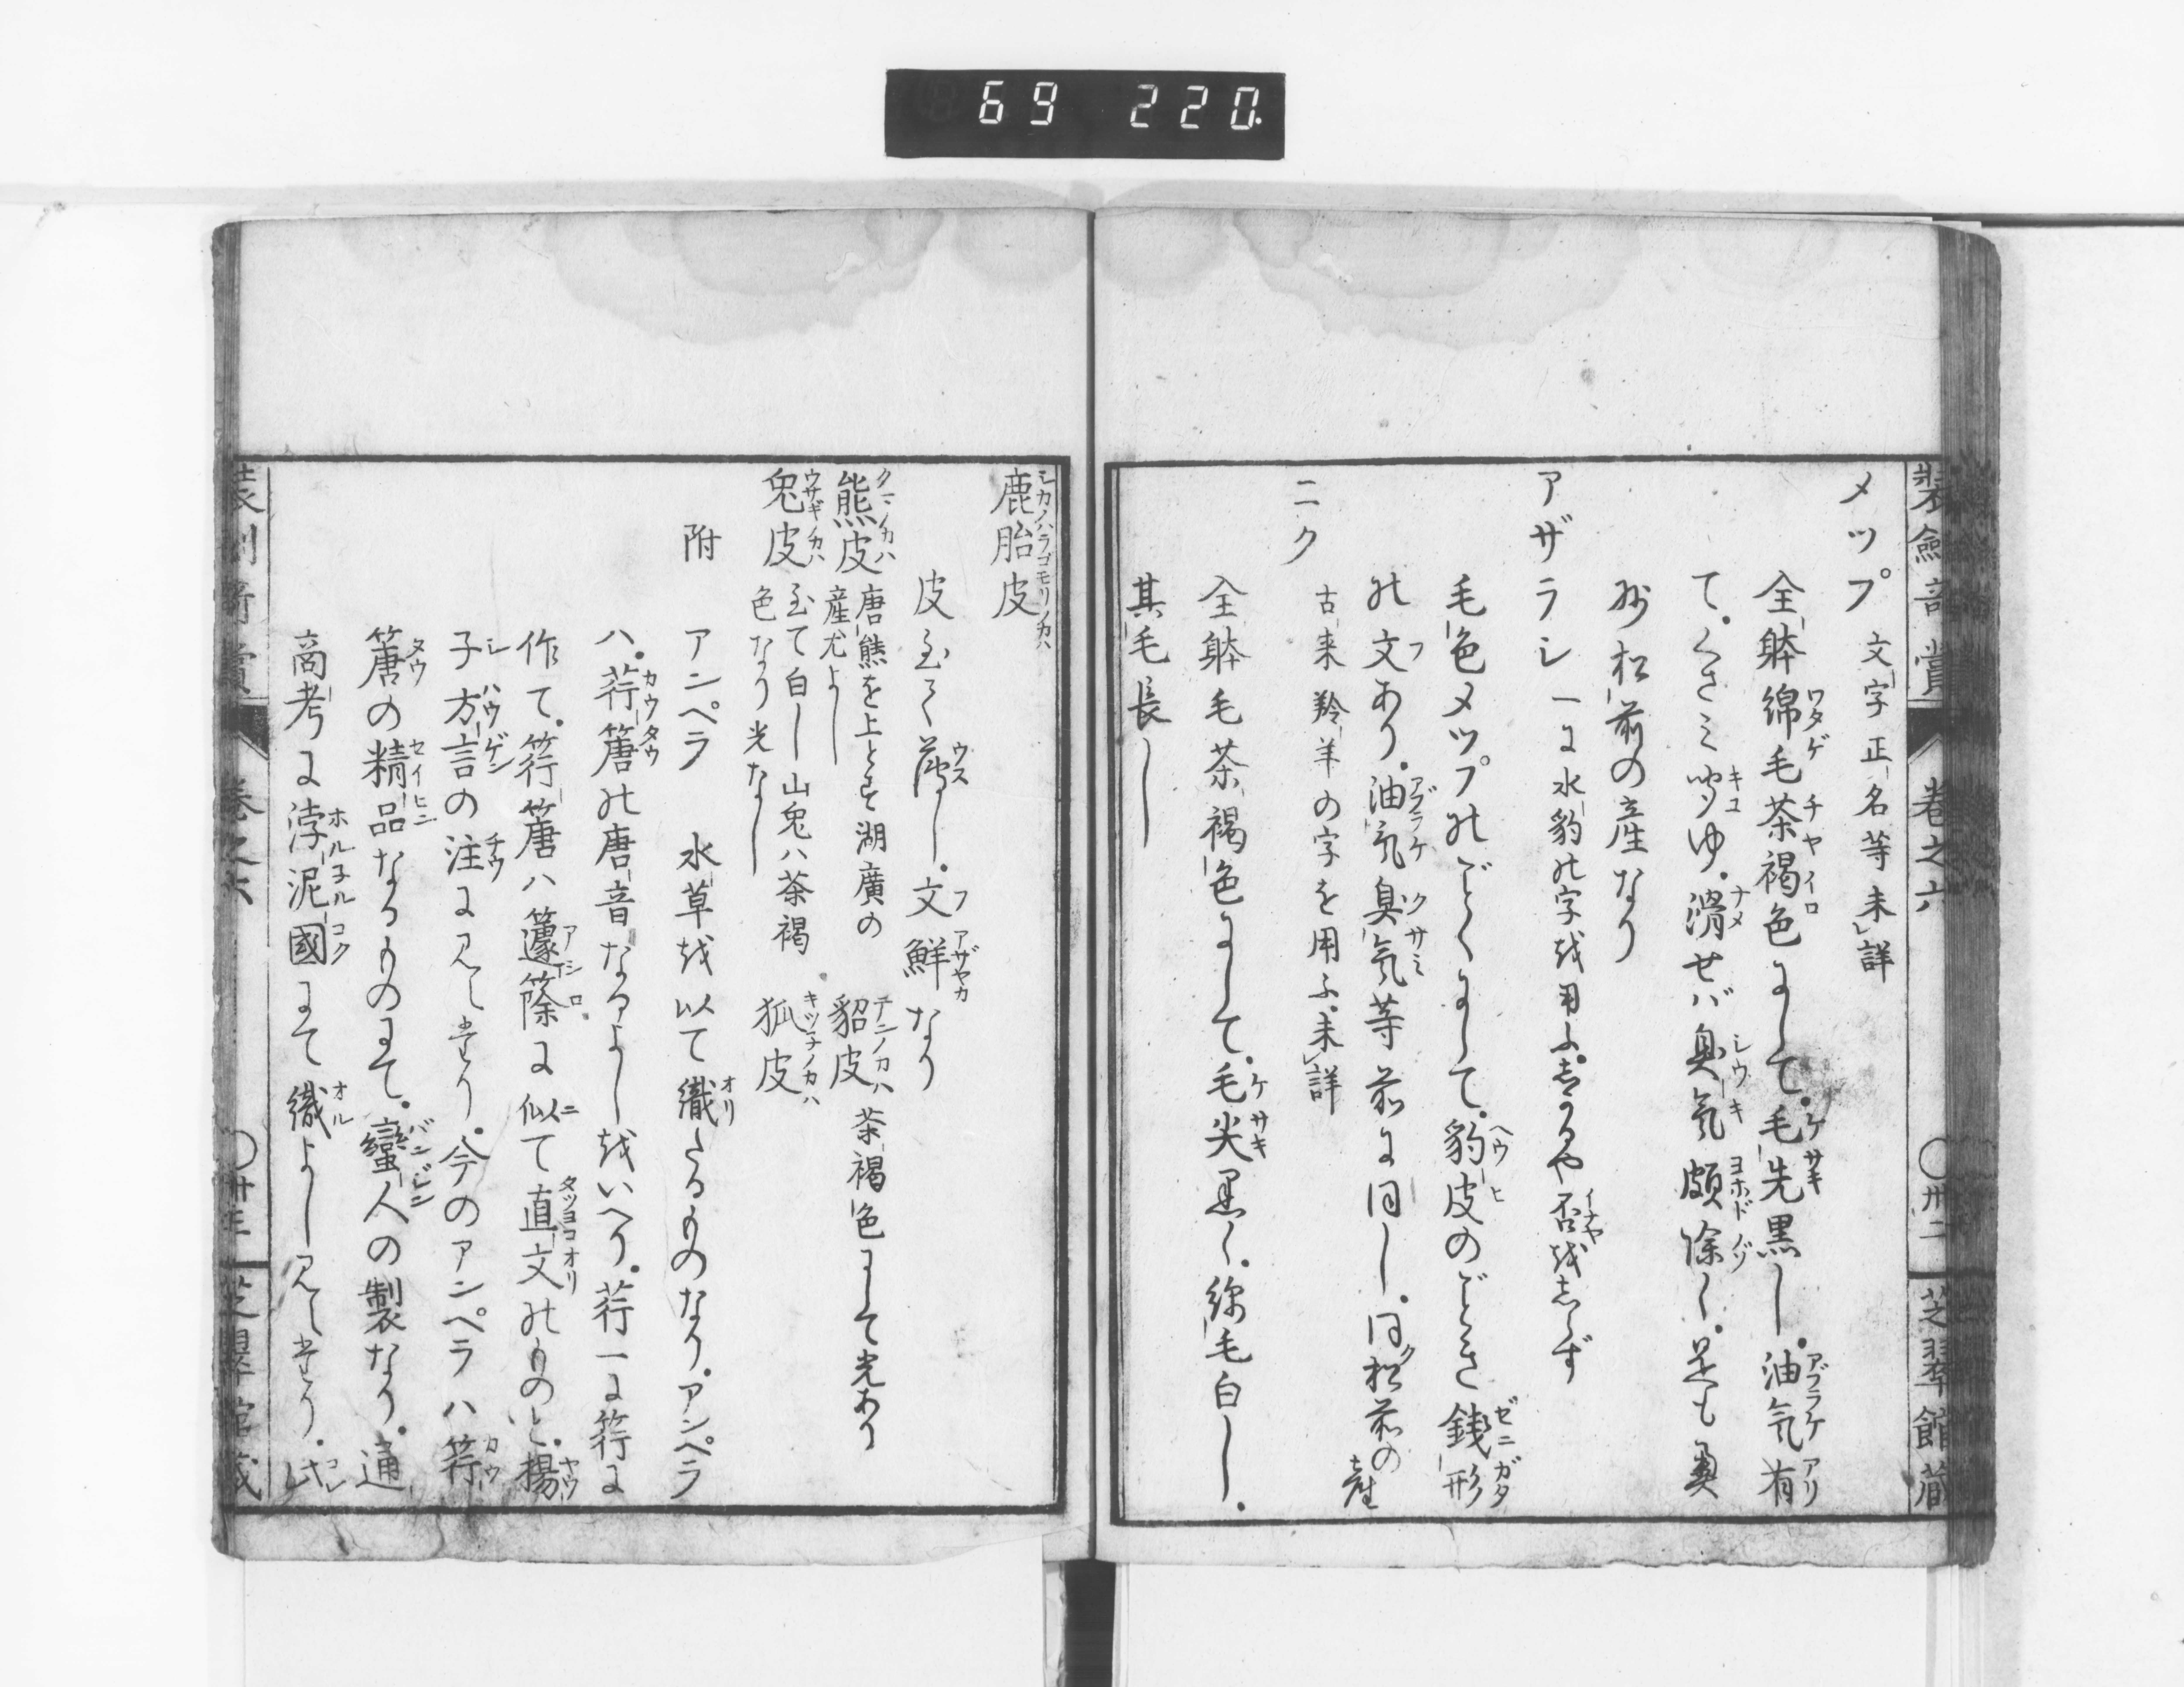 69 220
装劔竒賞 卷之六 〇卅二 芝翠館蔵
メップ 文字正名等未詳
全躰綿毛茶褐色にして。毛先黒し。油気有
て。くさミ聞ゆ。滑せバ臭気頗除く。是も奥
蝦松前の産なり
アザラシ 一に水豹の字を用ふ。あるや否をしらず
毛色メップのごとくにして。豹皮のごとき銭形
の文あり。油気臭気等前に同じ。同松前の産
ニク 古来羚羊の字を用ふ。未詳
全躰毛茶褐色にして。毛尖黒く。綿毛白し。
其毛長し
鹿胎皮
皮至て薄し。文鮮なり
熊皮 唐熊を上とす湖廣の産尤よし 貂皮 茶褐色にして光あり
兔皮 至て白し山兔ハ茶褐色なり光なし 狐皮
附 アンペラ 水草を以て織たるものなり。アンペラ
ハ。荇䉎の唐音なるよしをいへり。荇一に筕に
作て。筕䉎ハ籧篨に似て直文のものと。揚
子方言の注に見えたり。今のアンペラハ筕
䉎の精品なるものにて。蠻人の製なり。通
商考に浡泥國にて織よし見えたり。此
装劔竒賞 卷之六 〇卅三 芝翠館蔵